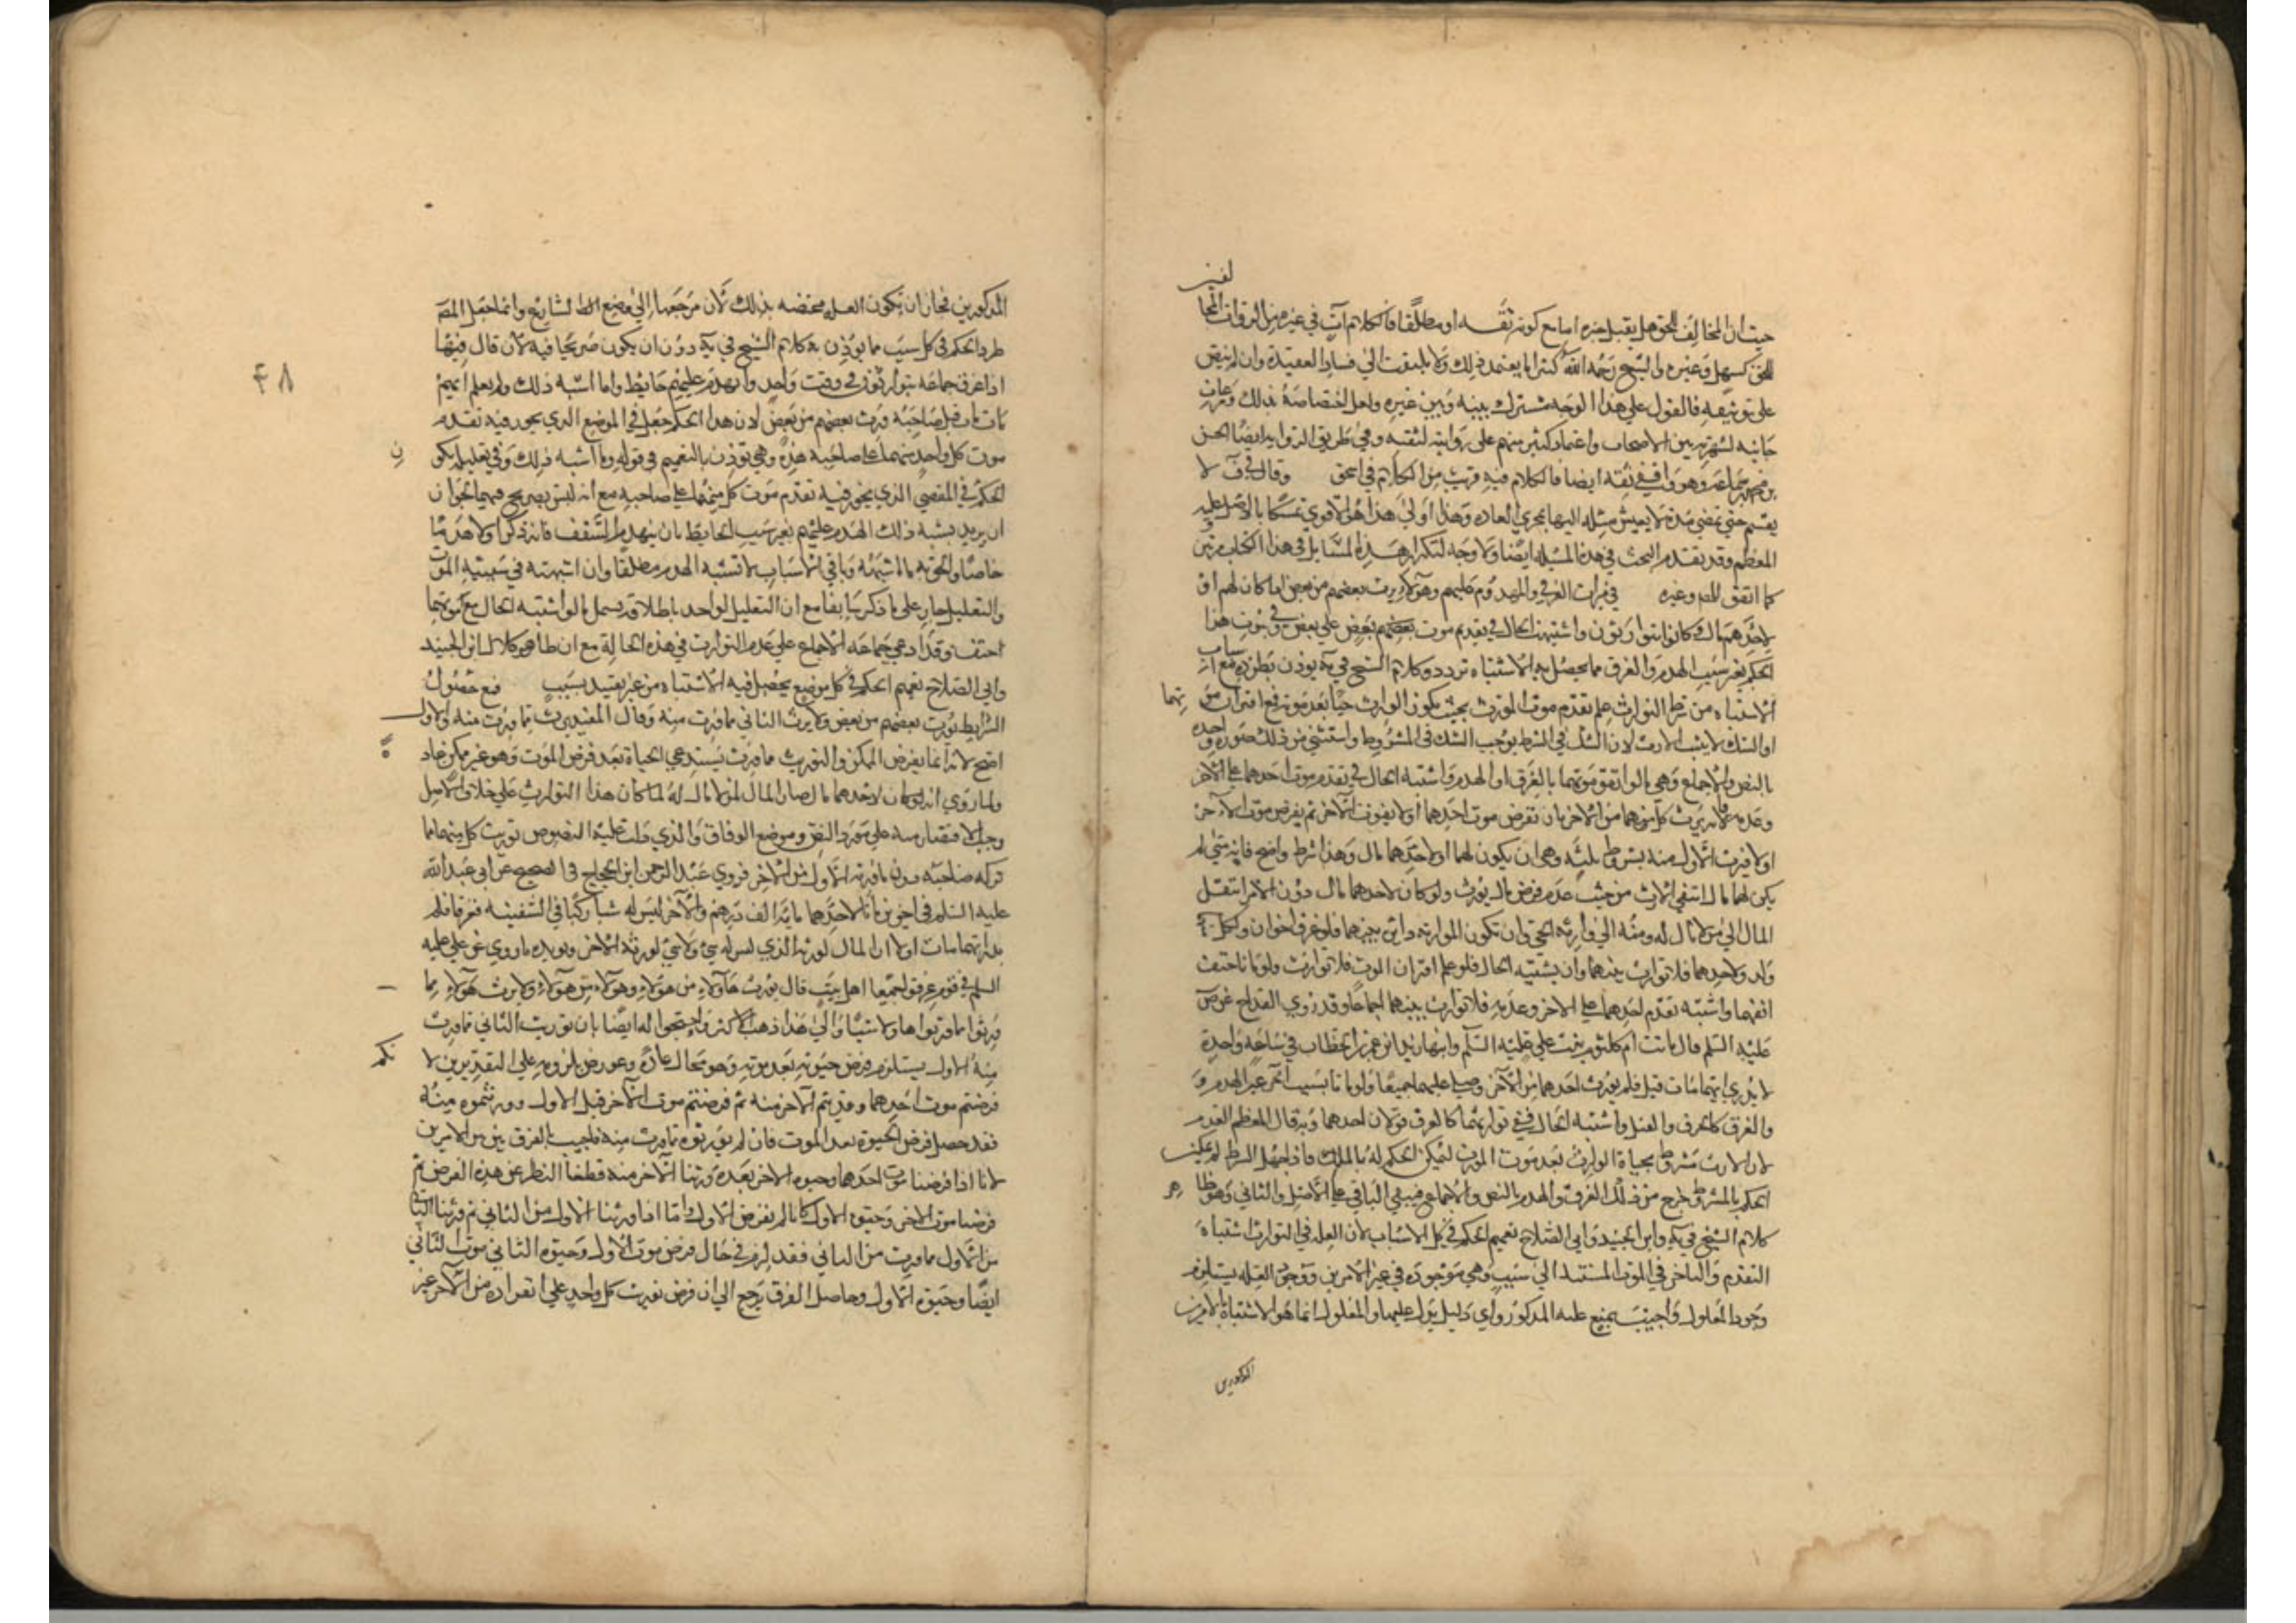 حيث ان المخالف للحق هل يقبل خبره اما مع كونه ثقه او مطلقا فالكلام آت في غيره من الرواة المخالفين
للحق كسهل وغيره والشيخ رحمه الله كثيرا ما يعتمد ذلك ولا يلتفت الى فساد العقيدة وان لم ينص
على توثيقه فالقول على هذا الوجه مشترك بينه وبين غيره ولعل اختصاصه بذلك
جانبه لشهرته بين الاصحاب واعتماد كثير منهم على روايته لثقته وفي طريق الرواية ايضا الحسن
بن محمد بن سماعه وهو واقفي ثقه ايضا فالكلام فيه قريب من الكلام في اسحق وقال في ف لا
يقسم حتى تمضي مدة لا يعيش مثله اليها بمجرى العاده وهذا اولى هذا هو الاقوى تمسكا بالاصل وعليه
المعظم وقد تقدم البحث في هذه المسئله ايضا ولا وجه لتكرار هذه المسايل في هذا الكتاب مرتين
كما اتفق للمص وغيره في ميراث الغرقى والمهدوم عليهم وهؤلاء يرث بعضهم من بعض اذا كان لهم او
لاحدهم مال وكانوا يتوارثون واشتبهت الحال في تقديم موت بعضهم على بعض وفي ثبوت هذا
الحكم بغير سبب الهدم والغرق مما يحصل به الاشتباه تردد وكلام الشيخ في يه يوذن بطرده مع اسباب
الاشتباه من شرط التوارث علم تقدم موت المورث بحيث يكون الوارث حيا بعد موته فمع اقتران موتهما
او الشك لا يثبت الارث لان الشك في الشرط يوجب الشك في المشروط واستثني من ذلك صورة واحده
بالنص والاجماع وهي ما لو اتفق موتهما بالغرق او الهدم واشتبه الحال في تقدم موت احدهما على الآخر
وعدمه فانه يرث كل منهما من الآخر بان نفرض موت احدهما اولا فيرث الآخر ثم يفرض موت الآخر
اولا فيرث الاول منه بشروط ثلثه وهي ان يكون لهما او لاحدهما مال وهذا شرط واضح فانه متى لم
يكن لهما مال انتفى الارث من حيث عدم فرض مال يورث ولو كان لاحدهما مال دون الآخر انتقل
المال الى من لا مال له ومنه الى وارثه الحي وان تكون الموارثه دايره بينهما فلو غرق اخوان ولكل
ولد ولاحدهما فلا توارث بينهما وان يشتبه الحال فلو علم اقتران الموت فلا توارث ولو ماتا حتف
انفهما واشتبه تقدم احدهما على الآخر وعدمه فلا توارث بينهما اجماعا وقد روي القداح عن ص
عليه السلم قال ماتت ام كلثوم بنت علي عليه السلم وابنها زيد ابن عمر بن الخطاب في ساعه واحدة
لا يدرى ايهما مات قبل فلم يورث احدهما من الآخر وصلي عليهما جميعا ولو ماتا بسبب آخر غير الهدم
والغرق كالحرق والقتل واشتبه الحال ففي توارثهما كالغرق قولان احدهما وبه قال المعظم العدم
لان الارث مشروط بحياة الوارث بعد موت المورث ليمكن الحكم له بالملك فاذا جهل الشرط لم يمكن
الحكم بالمشروط خرج من ذلك الغرق والهدم بالنص والاجماع فيبقى الباقي على الاصل والثاني وهو ظاهر
كلام الشيخ في يه وابن الجنيد وابي الصلاح تعميم الحكم في كل الاسباب لان العله في التوارث اشتباه
التقدم والتاخر في الموت المستند الى سبب وهي موجوده في غير الامرين ووجود العله يستلزم
وجود المعلول واجيب بمنع عله المذكور واي دليل يدل عليها والمعلول انما هو الاشتباه بالامرين
المذكورين
المذكورين فجاز ان تكون العله مختصه بذلك لان مرجعها الى وضع الشارع وانما جعل المص
طرد الحكم في كل سبب مما يوذن به كلام الشيخ في يه دون ان يكون صريحا فيه لان قال فيها
اذا غرق جماعه يتوارثون في وقت واحد او انهدم عليهم حايط وما اشبه ذلك ولم يعلم ايهم
مات قبل صاحبه ورث بعضهم من بعض لان هذا الحكم جعل في الموضع الذي يجوز فيه تقدم
موت كل واحد منهما على صاحبه هذه وهي توذن بالتعميم في قوله وما اشبه ذلك وفي تعليله بكون
الحكم في المقضي الذي يجوز فيه تقدم موت كل منهما على صاحبه مع انه ليس بصريح فيهما لجواز
ان يريد بشبه ذلك الهدم عليهم بغير سبب الحايط بان ينهدم السقف فانه ذكر اولا هدما
خاصا والحق به ما اشبهه وباقي الاسباب لا تشبه الهدم مطلقا وان اشبهته في سببيه الموت
والتعليل جار على ما ذكر سابقا مع ان التعليل الواحد باطلاقه يشمل ما لو اشتبه الحال مع موتهما
حتفا وقد ادعى جماعه الاجماع على عدم التوارث في هذه الحالة مع ان ظاهر كلام ابن الجنيد
وابي الصلاح تعميم الحكم في كل موضع يحصل فيه الاشتباه من غير تقييد بسبب فمع حصول
الشرايط يورث بعضهم من بعض ولا يرث الثاني مما ورث منه وقال المفيد يرث مما ورث منه والاول
اصح لانه انما يفرض الممكن والتوريث مما ورث يستدعي الحياة بعد فرض الموت وهو غير ممكن عادة
ولما روي انه لو كان لاحدهما مال صار المال لمن لا مال له لما كان هذا التوارث على خلاف الاصل
وجب الاقتصار منه على مورد النص وموضع الوفاق والذي دلت عليه النصوص توريث كل منهما مما
تركه صاحبه دون ما ورثه الاول من الآخر فروى عبد الرحمن ابن الحجاج في الصحيح عن ابي عبد الله
عليه السلم في اخوين ماتا لاحدهما مائة الف درهم والآخر ليس له شيا ركبا في السفينه فغرقا فلم
يدر ايهما مات اولا ان المال لورثه الذي ليس له شئ ولا شئ لورثه الآخر ويويده ما روي عن علي عليه
السلم في قوم غرقوا جميعا اهل بيت قال يورث هاولاء من هولاء وهولاء من هولاء ولا يرث هولاء مما
ورثوا مما ورثوا هاولاء شيا والى هذا ذهب الاكثر واحتجوا له ايضا بان توريث الثاني مما ورث
منه الاول يستلزم فرض حيوته بعد موته وهو محال عادة وعورض بلزومه على التقديرين لانكم
فرضتم موت احدهما وورثتم الآخر منه ثم فرضتم موت الآخر قبل الاول وورثتموه منه
فقد حصل فرض الحيوة بعد الموت فان لم يورثوه مما ورث منه فاجيب بالفرق بين الامرين
لانا اذا فرضنا موت احدهما وحيوه الآخر بعده ورثنا الآخر منه قطعنا النظر عن هذه الفرض ثم
فرضنا موت الآخر وحيوه الاول كانا لم نفرض الاول واما اذا ورثنا الاول من الثاني ثم ورثنا الثاني
من الاول مما ورث من الثاني فقد لزم في حال فرض موت الاول وحيوه الثاني موت الثاني
ايضا وحيوه الاول وحاصل الفرق يرجع الى ان فرض توريث كل واحد على انفراده من الآخر غير